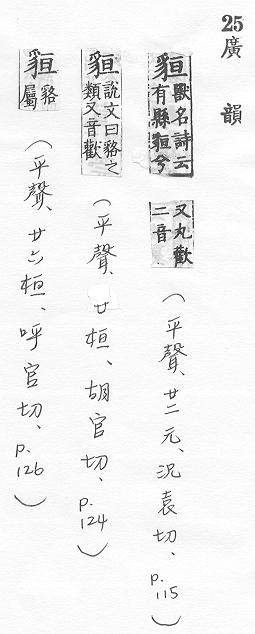 25 廣韻
貆 獸名詩云有縣貆兮 又丸歡二音 (平聲、廿二元、況袁切、p.115)
貆 說文曰貉之類又音歡 (平聲、廿桓、胡官切、p.124)
貆 貉屬 (平聲、廿六桓、呼官切、p.126)